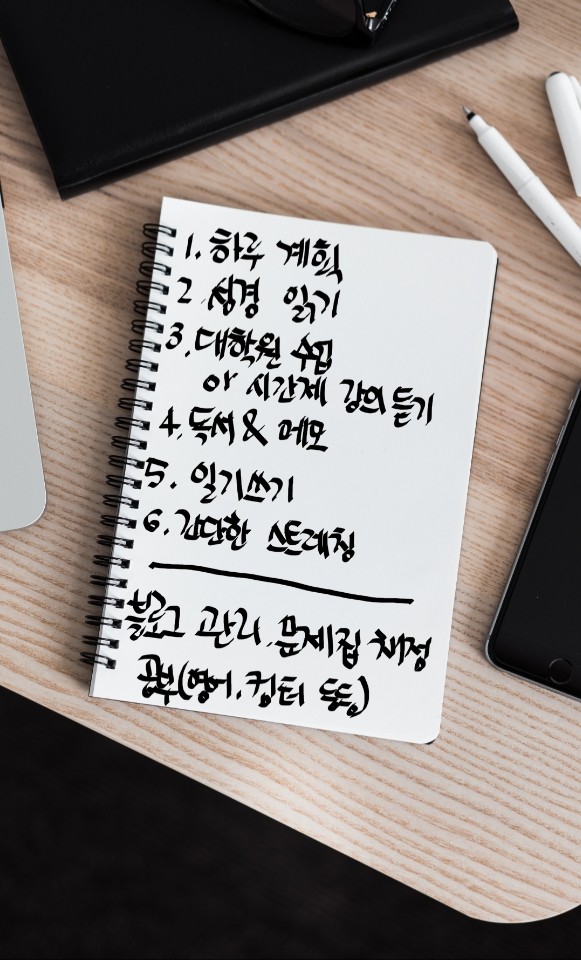 1. 하루 계획
2. 성경 읽기
3. 대학원 수업
or 시간제 강의 듣기
4. 독서 & 메모
5. 일기쓰기
6. 간단한 스트레칭
블로그 관리, 문제집 채점
공부(영어, 컴터 등등)